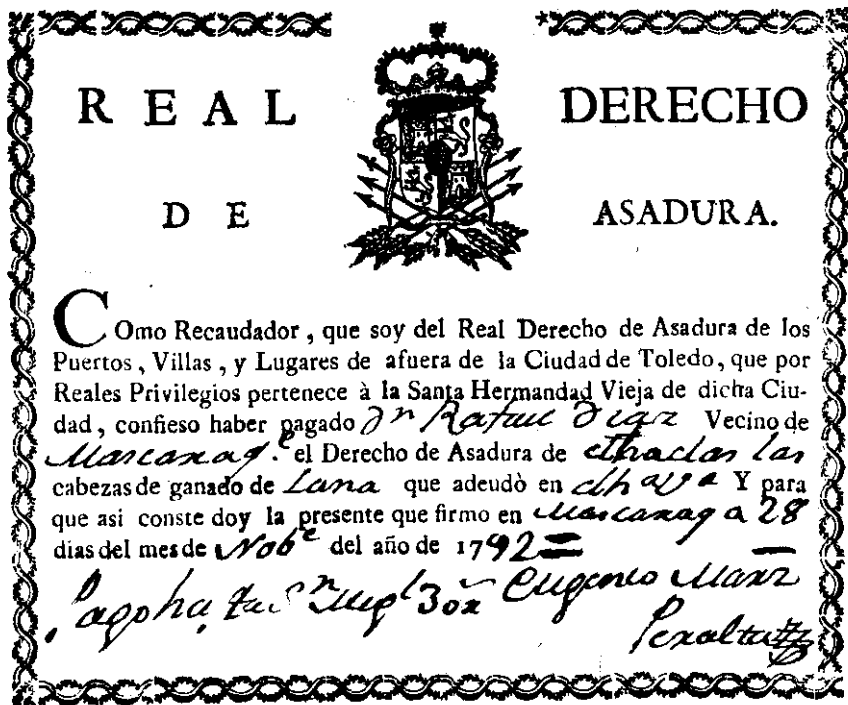 REAL DERECHO
DE ASADURA.
COmo Recaudador, que soy del Real Derecho de Asadura de los
Puertos, Villas, y Lugares de afuera de la Ciudad de Toledo, que por
Reales Privilegios pertenece à la Santa Hermandad Vieja de dicha Ciu-
dad, confieso haber pagado Dn Rafael Diaz Vecino de
Mascaraq.e el Derecho de Asadura de las
cabezas de ganado de Lana que adeudò en Y para
que asi conste doy la presente que firmo en Mascaraq a 28
dias del mes de Nobe del año de 1792=
Eugenio Marz
Peralta